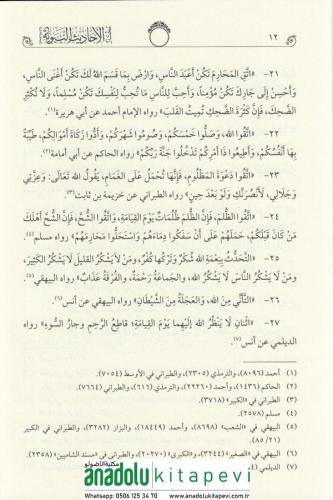 ١٢
الأحاديث النبوية
٢١- «اتَّقِ المَحَارِمَ تَكُنْ أَعْبَدَ النَّاسِ، وَارْضَ بِمَا قَسَمَ اللهُ لَكَ تَكُنْ أَغْنَى النَّاسِ،
وَأَحْسِنْ إِلَى جَارِكَ تَكُنْ مُؤْمِناً، وَأَحِبَّ لِلنَّاسِ مَا تُحِبُّ لِنَفْسِكَ تَكُنْ مُسْلِماً، وَلَا تُكْثِرِ
الضَّحِكَ، فَإِنَّ كَثْرَةَ الضَّحِكِ تُمِيتُ القَلْبَ» رواه الإمام أحمد عن أبي هريرة(١).
٢٢- «اتَّقُوا اللهَ، وَصَلُّوا خَمْسَكُمْ، وَصُومُوا شَهْرَكُمْ، وَأَدُّوا زَكَاةَ أَمْوَالِكُمْ، طَيِّبَةً
بِهَا أَنْفُسُكُمْ، وَأَطِيعُوا ذَا أَمْرِكُمْ تَدْخُلُوا جَنَّةَ رَبِّكُمْ» رواه الحاكم عن أبي أمامة(٢).
٢٣- «اتَّقُوا دَعْوَةَ المَظْلُومِ، فَإِنَّهَا تُحْمَلُ عَلَى الغَمَامِ، يَقُولُ اللهُ تَعَالَى: وَعِزَّتِي
وَجَلَالِي، لَأَنْصُرَنَّكِ وَلَوْ بَعْدَ حِينٍ» رواه الطبراني عن خزيمة بن ثابت(٣).
٢٤- «اتَّقُوا الظُّلْمَ، فَإِنَّ الظُّلْمَ ظُلُمَاتٌ يَوْمَ القِيَامَةِ، وَاتَّقُوا الشُّحَّ، فَإِنَّ الشُّحَّ أَهْلَكَ
مَنْ كَانَ قَبْلَكُمْ، حَمَلَهُمْ عَلَى أَنْ سَفَكُوا دِمَاءَهُمْ وَاسْتَحَلُّوا مَحَارِمَهُمْ» رواه مسلم(٤).
٢٥- «التَّحَدُّثُ بِنِعْمَةِ اللهِ شُكْرٌ وَتَرْكُهَا كُفْرٌ، وَمَنْ لَا يَشْكُرُ القَلِيلَ لَا يَشْكُرُ الكَثِيرَ،
وَمَنْ لَا يَشْكُرُ النَّاسَ لَا يَشْكُرُ اللهَ، والجَمَاعَةُ رَحْمَةٌ، وَالفُرْقَةُ عَذَابٌ» رواه البيهقي(٥).
٢٦- «التَّأَنِّي مِنَ اللهِ، وَالعَجَلَةُ مِنَ الشَّيْطَانِ» رواه البيهقي عن أنس(٦).
٢٧- «اثْنَانِ لَا يَنْظُرُ اللهُ إِلَيْهِمَا يَوْمَ القِيَامَةِ: قَاطِعُ الرَّحِمِ وجارُ السُّوءِ» رواه
الديلمي عن أنس(٧).
(١) أحمد (٨٠٩٦)، والترمذي (٢٣٠٥)، والطبراني في الأوسط (٧٠٥٤).
(٢) الحاكم (١٤٣٦)، وأحمد (٢٢٢٦٠)، والترمذي (٦١٦)، والطبراني (٧٦٦٤).
(٣) الطبراني في «الكبير» (٣٧١٨).
(٤) مسلم (٢٥٧٨).
(٥) البيهقي في «الشعب» (٨٦٩٨)، وأحمد (١٨٤٤٩)، والبزار (٣٢٨٢)، والطبراني في الكبير
(٢١/ ٨٥).
(٦) البيهقي في «الصغير» (٣٢٤٤) و«الكبرى» (٢٠٢٧٠)، والطبراني في «مسند الشاميين» (٢٣٥٨)
(٧) الديلمي
مكتبة الأناضولو
anadolu kitapevi
Whatsapp: 0506 125 34 70 - www.anadolukitapevi.com